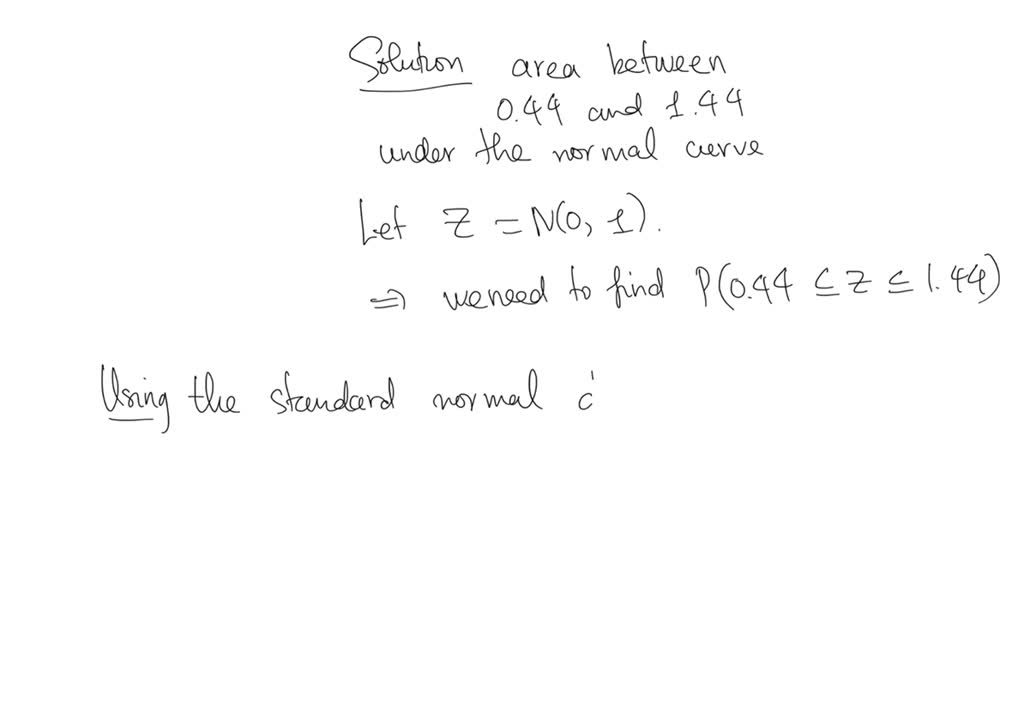 Solution area between
0.44 and 1.44
under the normal curve
Let Z = N(0, 1).
⇒ we need to find P(0.44 ≤ Z ≤ 1.44)
Using the standard normal